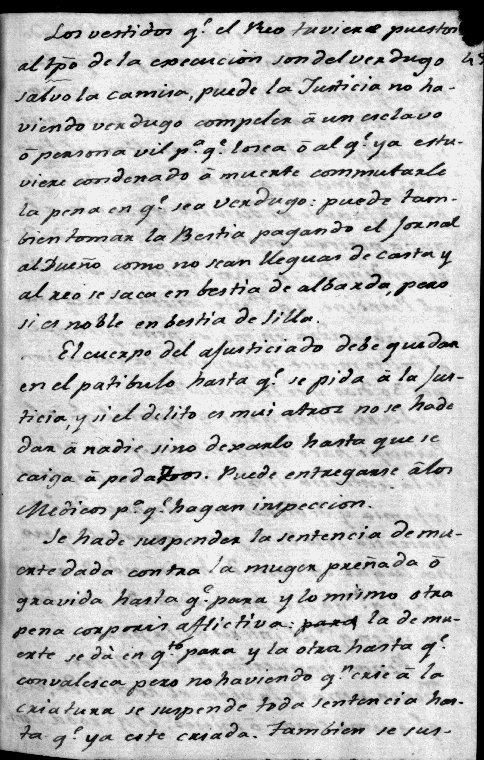 Los vestidos q.e el Reo tuviere puestos
al tpõ de la execucion son del verdugo
salvo la camisa, puede la Justicia no ha-
viendo verdugo compeler â un esclavo
ô persona vil p.a q.e lo sea ô al q.e ya estu-
viere condenado â muerte commutarle
la pena en q.e sea verdugo: puede tam-
bien tomar la Bestia pagando el Jornal
al Dueño como no sean lleguas de casta y
al reo se saca en bestia de albarda, pero
si es noble en bestia de silla.
El cuerpo del ajusticiado debe quedar
en el patibulo hasta q.e se pida â la Jus-
ticia, y si el delito es mui atroz no se hade
dar â nadie sino dexarlo hasta que se
caiga â pedazos. Puede entregarse âlos
Medicos p.a q.e hagan inspeccion.
Se hade suspender la sentencia de mu-
erte dada contra la muger preñada ô
gravida hasta q.e para y lo mismo otra
pena corporis aflictiva: para la de mu-
erte se dà en q.to para y la otra hasta q.e
convalesca pero no haviendo q.n crie â la
criatura se suspende toda sentencia has-
ta q.e ya este criada. Tambien se sus-